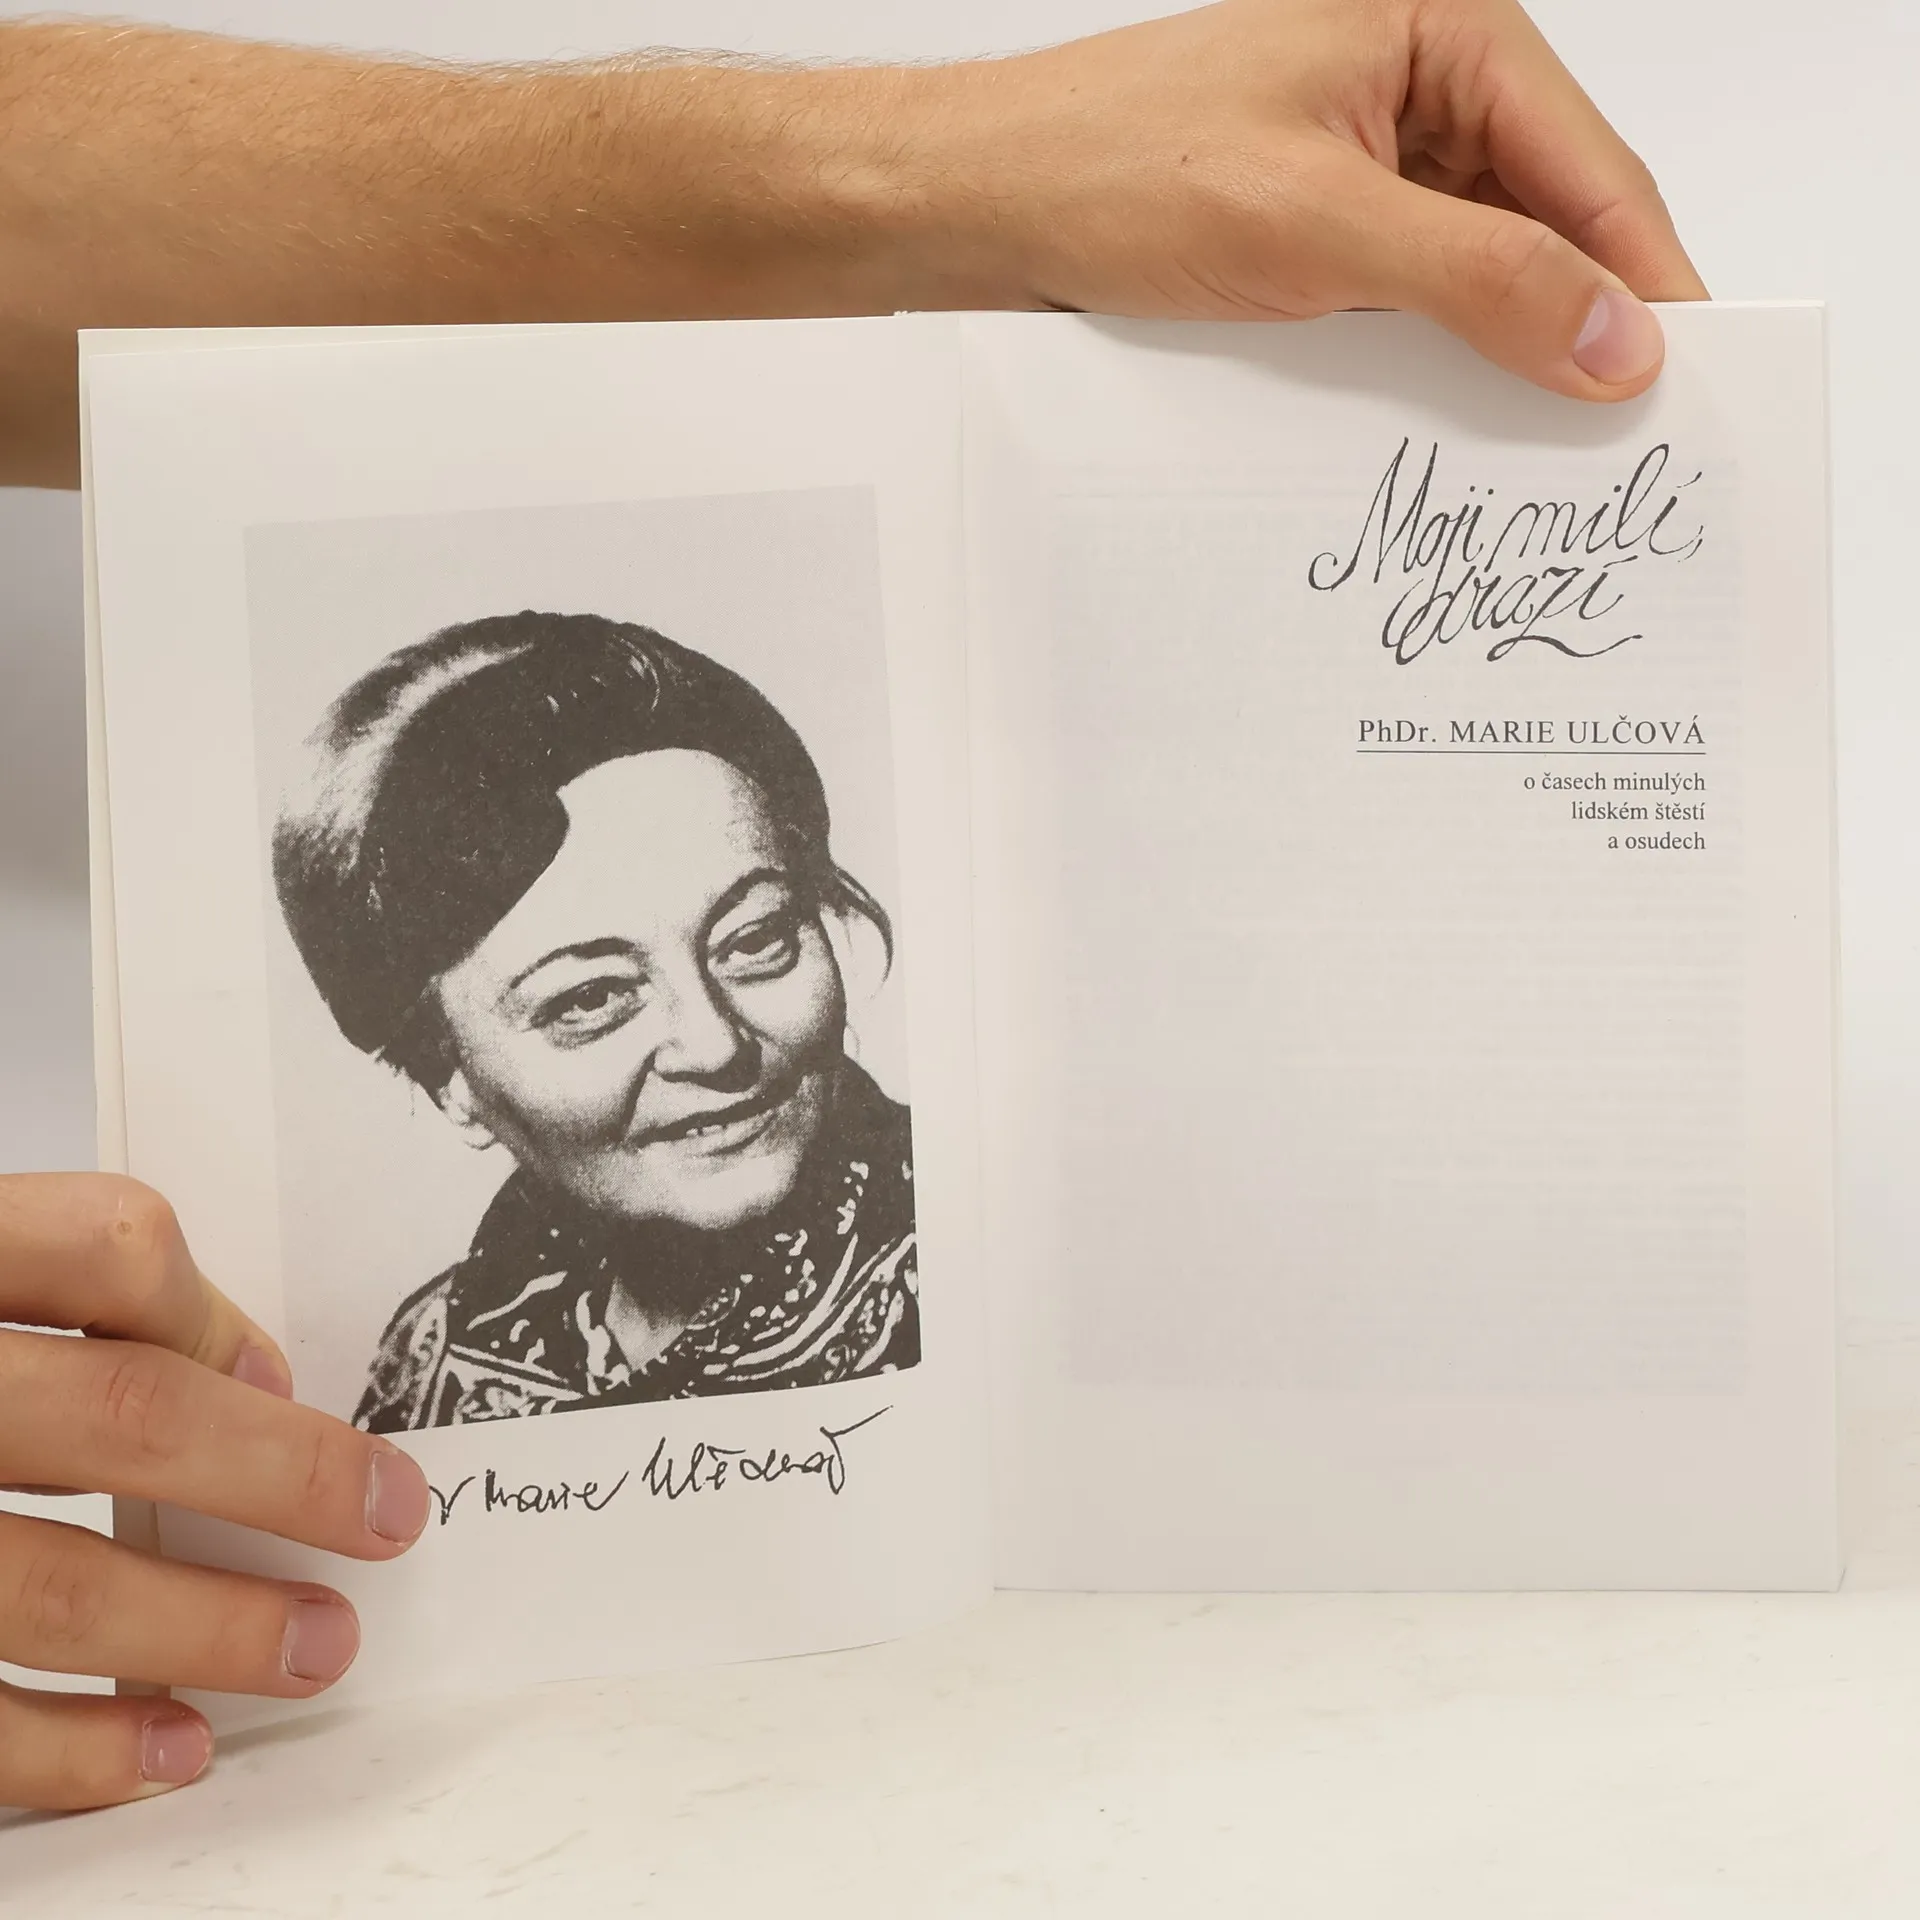 Marie Ulčová
Moji milí,
drazí
PhDr. MARIE ULČOVÁ
o časech minulých
lidském štěstí
a osudech